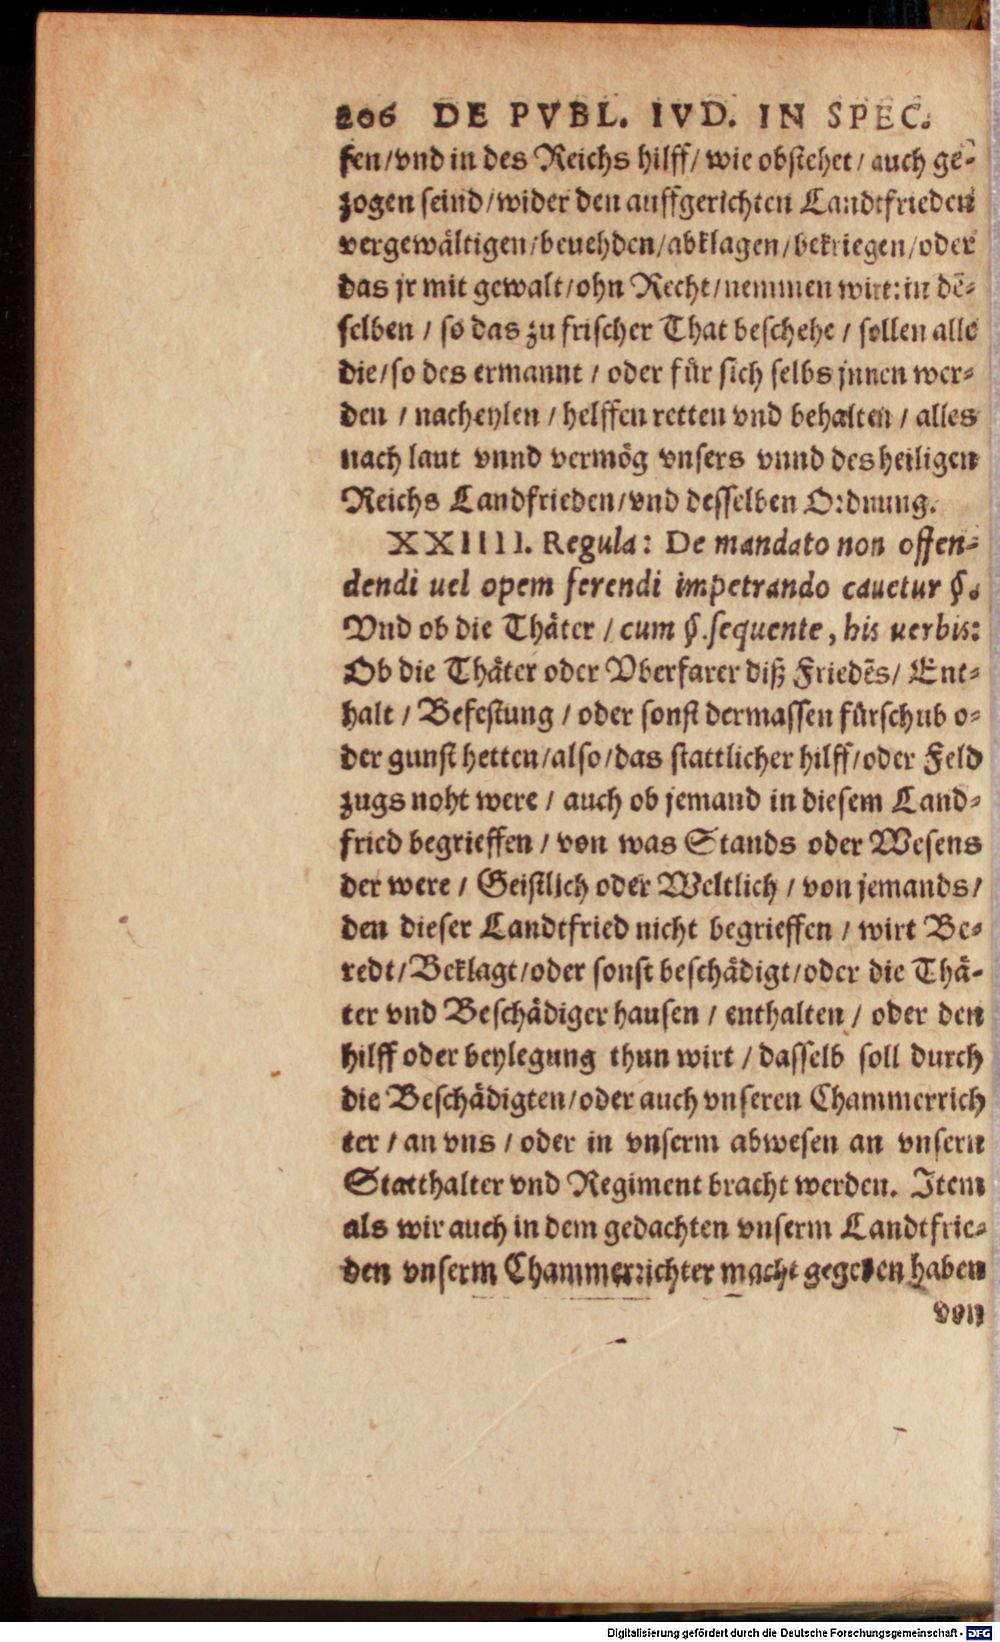 206 DE PVBL. IVD. IN SPEC.
sen/vnd in des Reichs hilff/ wie obstehet / auch ge-
zogen seind/wider den auffgerichten Landtfrieden
vergewältigen/beuehden/abklagen/bekriegen/oder
das jr mit gewalt/ohn Recht/nemmen wirt: in dē-
selben / so das zu frischer That beschehe / sollen alle
die/so des ermannt / oder für sich selbs jnnen wer-
den / nacheylen / helffen retten vnd behalten / alles
nach laut vnnd vermög vnsers vnnd des heiligen
Reichs Landfrieden/vnd desselben Ordnung.
XXIIII. Regula: De mandato non offen-
dendi uel opem ferendi impetrando cauetur §.
Vnd ob die Thäter / cum §.sequente, his uerbis:
Ob die Thäter oder Vberfarer diß Friedēs/ Ent-
halt / Befestung / oder sonst dermassen fürschub o-
der gunst hetten/also/das stattlicher hilff/oder Feld
zugs noht were / auch ob jemand in diesem Land-
fried begrieffen / von was Stands oder Wesens
der were / Geistlich oder Weltlich / von jemands/
den dieser Landtfried nicht begrieffen / wirt Be-
redt/Beklagt/oder sonst beschädigt/oder die Thä-
ter vnd Beschädiger hausen / enthalten / oder den
hilff oder beylegung thun wirt / dasselb soll durch
die Beschädigten/oder auch vnseren Chammerrich
ter / an vns / oder in vnserm abwesen an vnsern
Statthalter vnd Regiment bracht werden. Item
als wir auch in dem gedachten vnserm Landtfrie-
den vnserm Chammerrichter macht gegeben haben
von
Digitalisierung gefördert durch die Deutsche Forschungsgemeinschaft - DFG